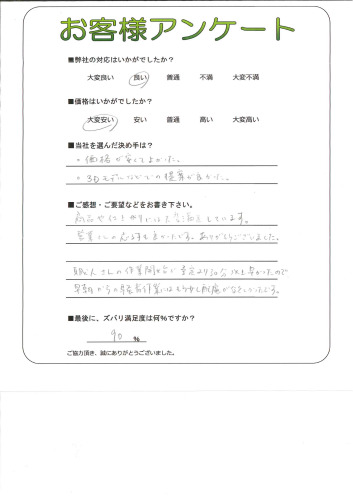 お客様アンケート
■弊社の対応はいかがでしたか？
大変良い 良い 普通 不満 大変不満
■価格はいかがでしたか？
大変安い 安い 普通 高い 大変高い
■当社を選んだ決め手は？
・価格が安くてよかった。
・3Dモデルなどでの提案が良かった。
■ご感想・ご要望などをお書き下さい。
商品や仕上がりには大変満足しています。
営業さんの応対も良かったです。ありがとうございました。
職人さんの作業開始が予定より30分以上早かったので
早朝からの作業にはもう少し配慮がほしかったです。
■最後に、ズバリ満足度は何％ですか？
90 ％
ご協力頂き、誠にありがとうございました。